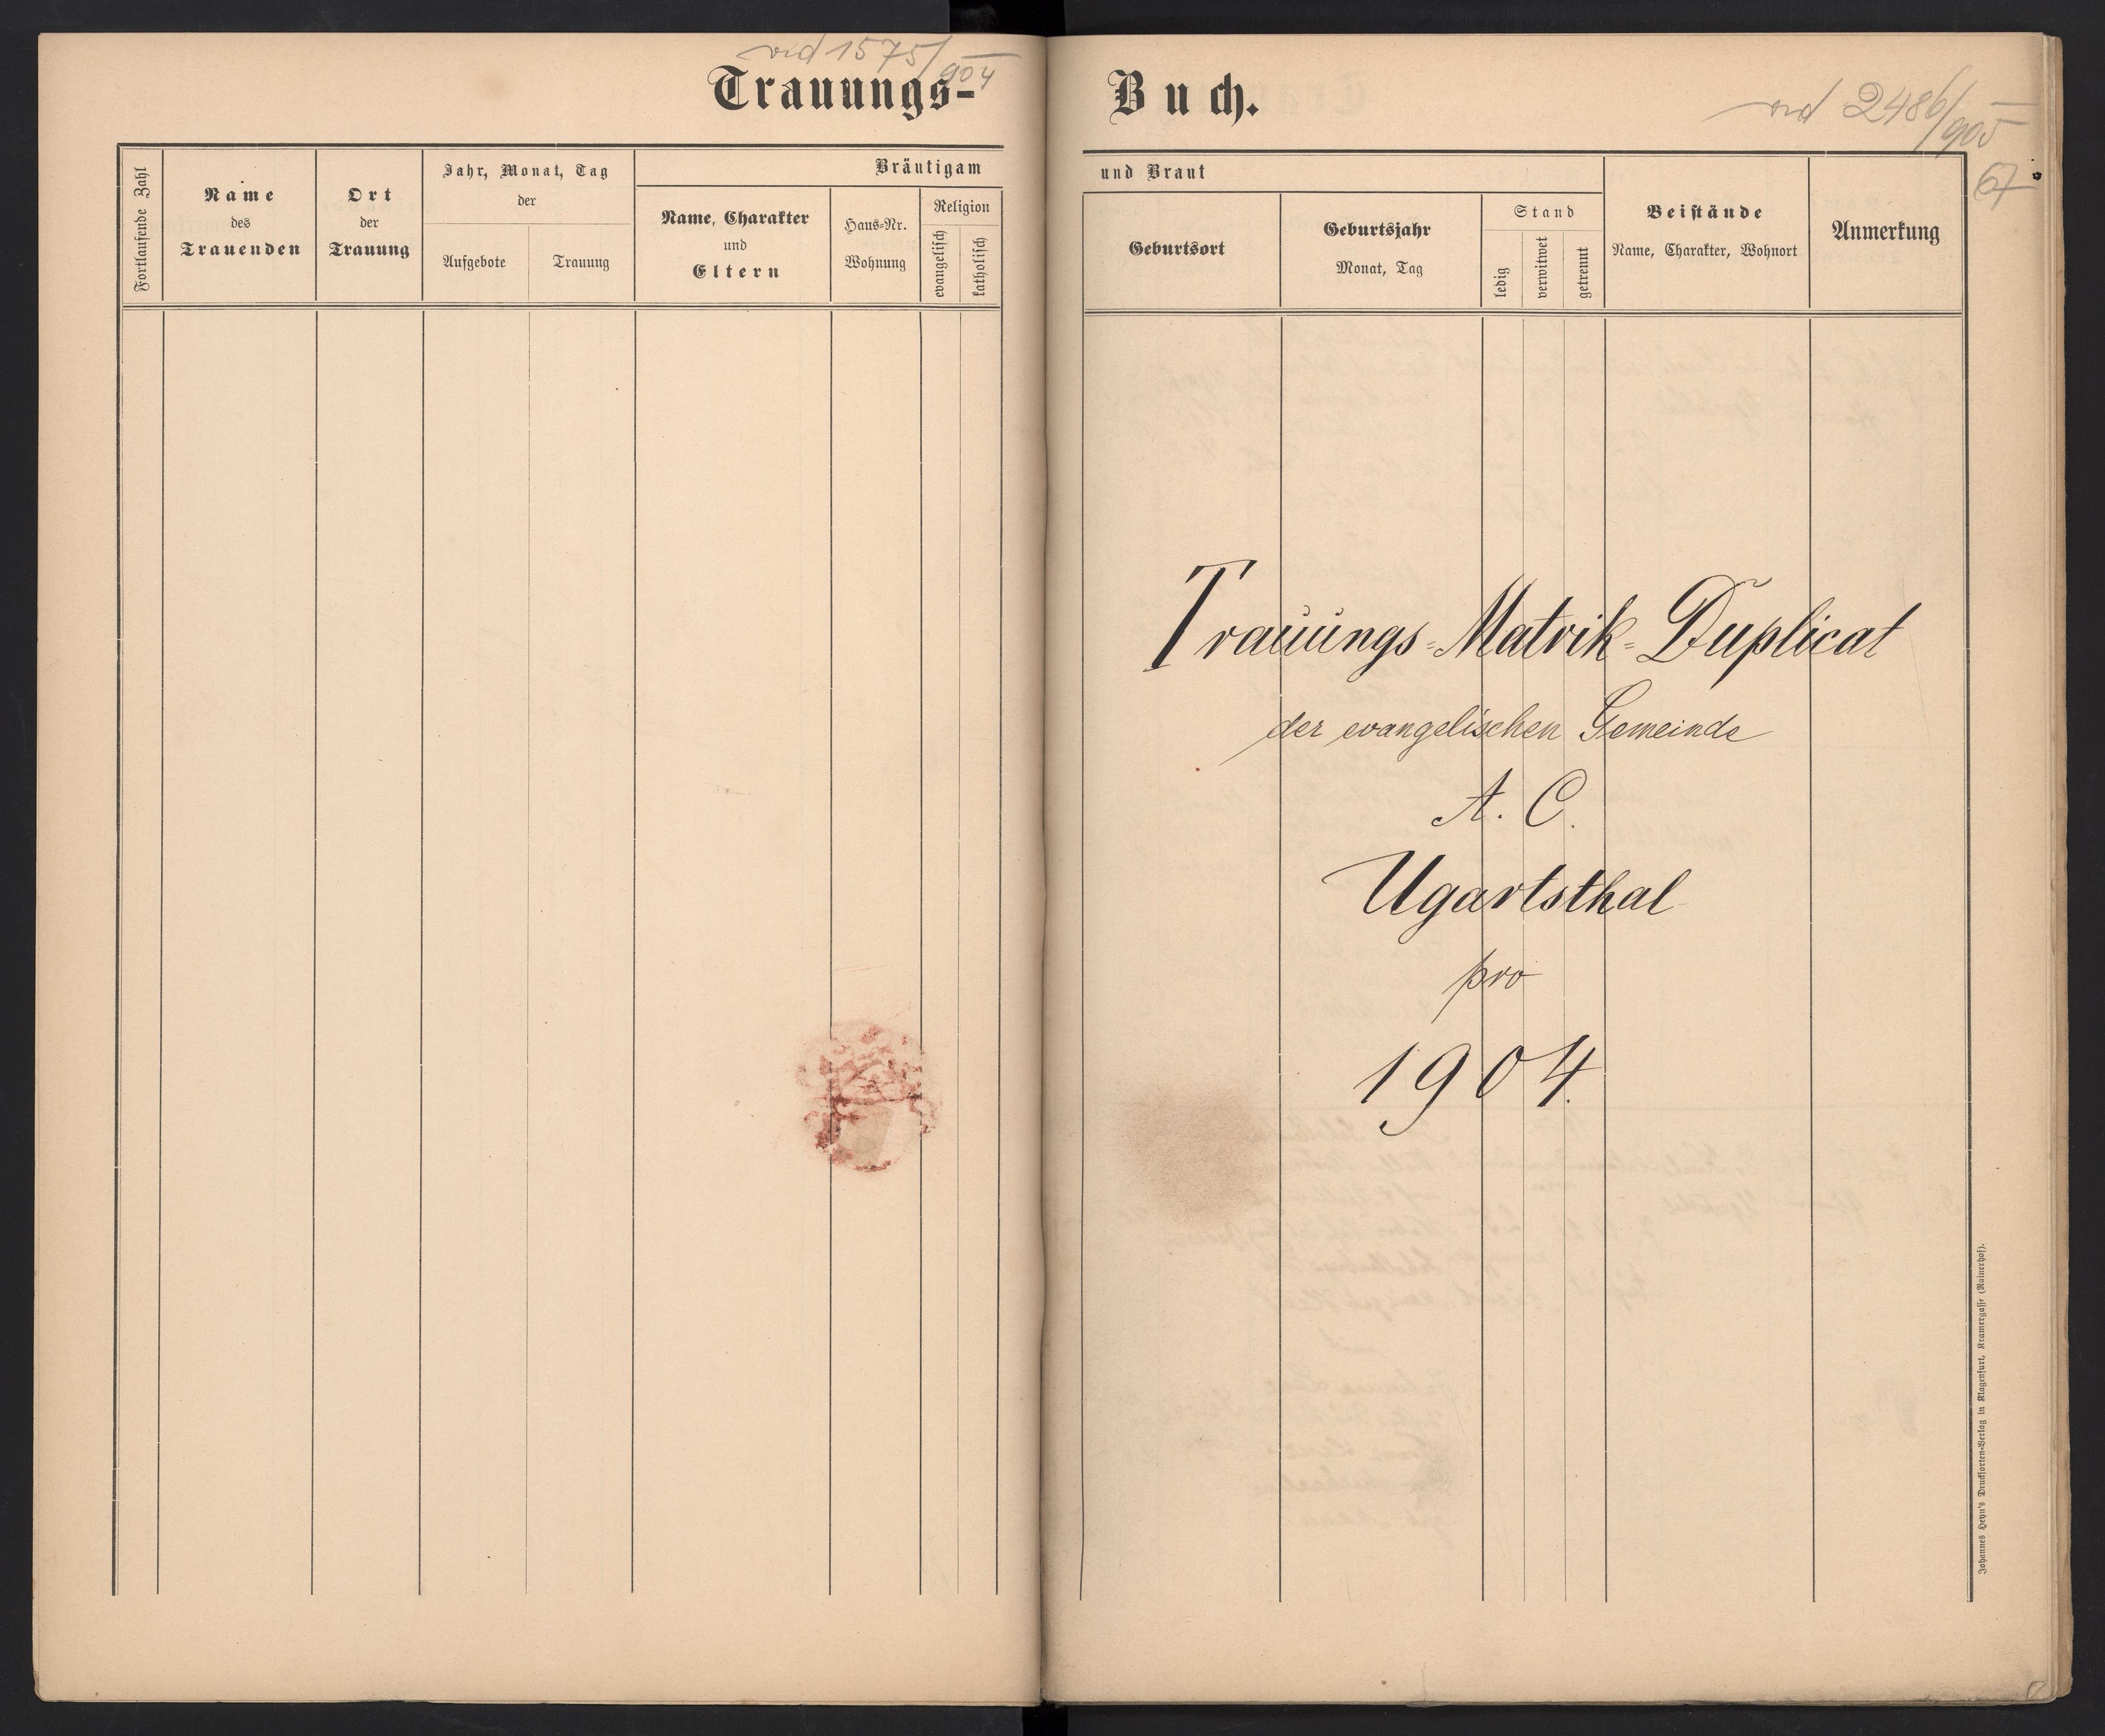 vid 1575/904
Trauungs-
Fortlaufende Zahl
Name
des
Trauenden
Ort
der
Trauung
Jahr, Monat, Tag
der
Aufgebote
Trauung
Bräutigam
Name, Charakter
und
Eltern
Haus-Nr.
Wohnung
Religion
evangelisch
katholisch
Buch.
vid 2486/905
67
und Braut
Geburtsort
Geburtsjahr
Monat, Tag
Stand
ledig
verwitwet
getrennt
Beistände
Name, Charakter, Wohnort
Anmerkung
Trauungs-Matrik-Duplicat
der evangelischen Gemeinde
A. C.
Ugartsthal
pro
1904.
Johannes Heyn's Drucksorten-Verlag in Klagenfurt, Kramergasse (Rainerhof).